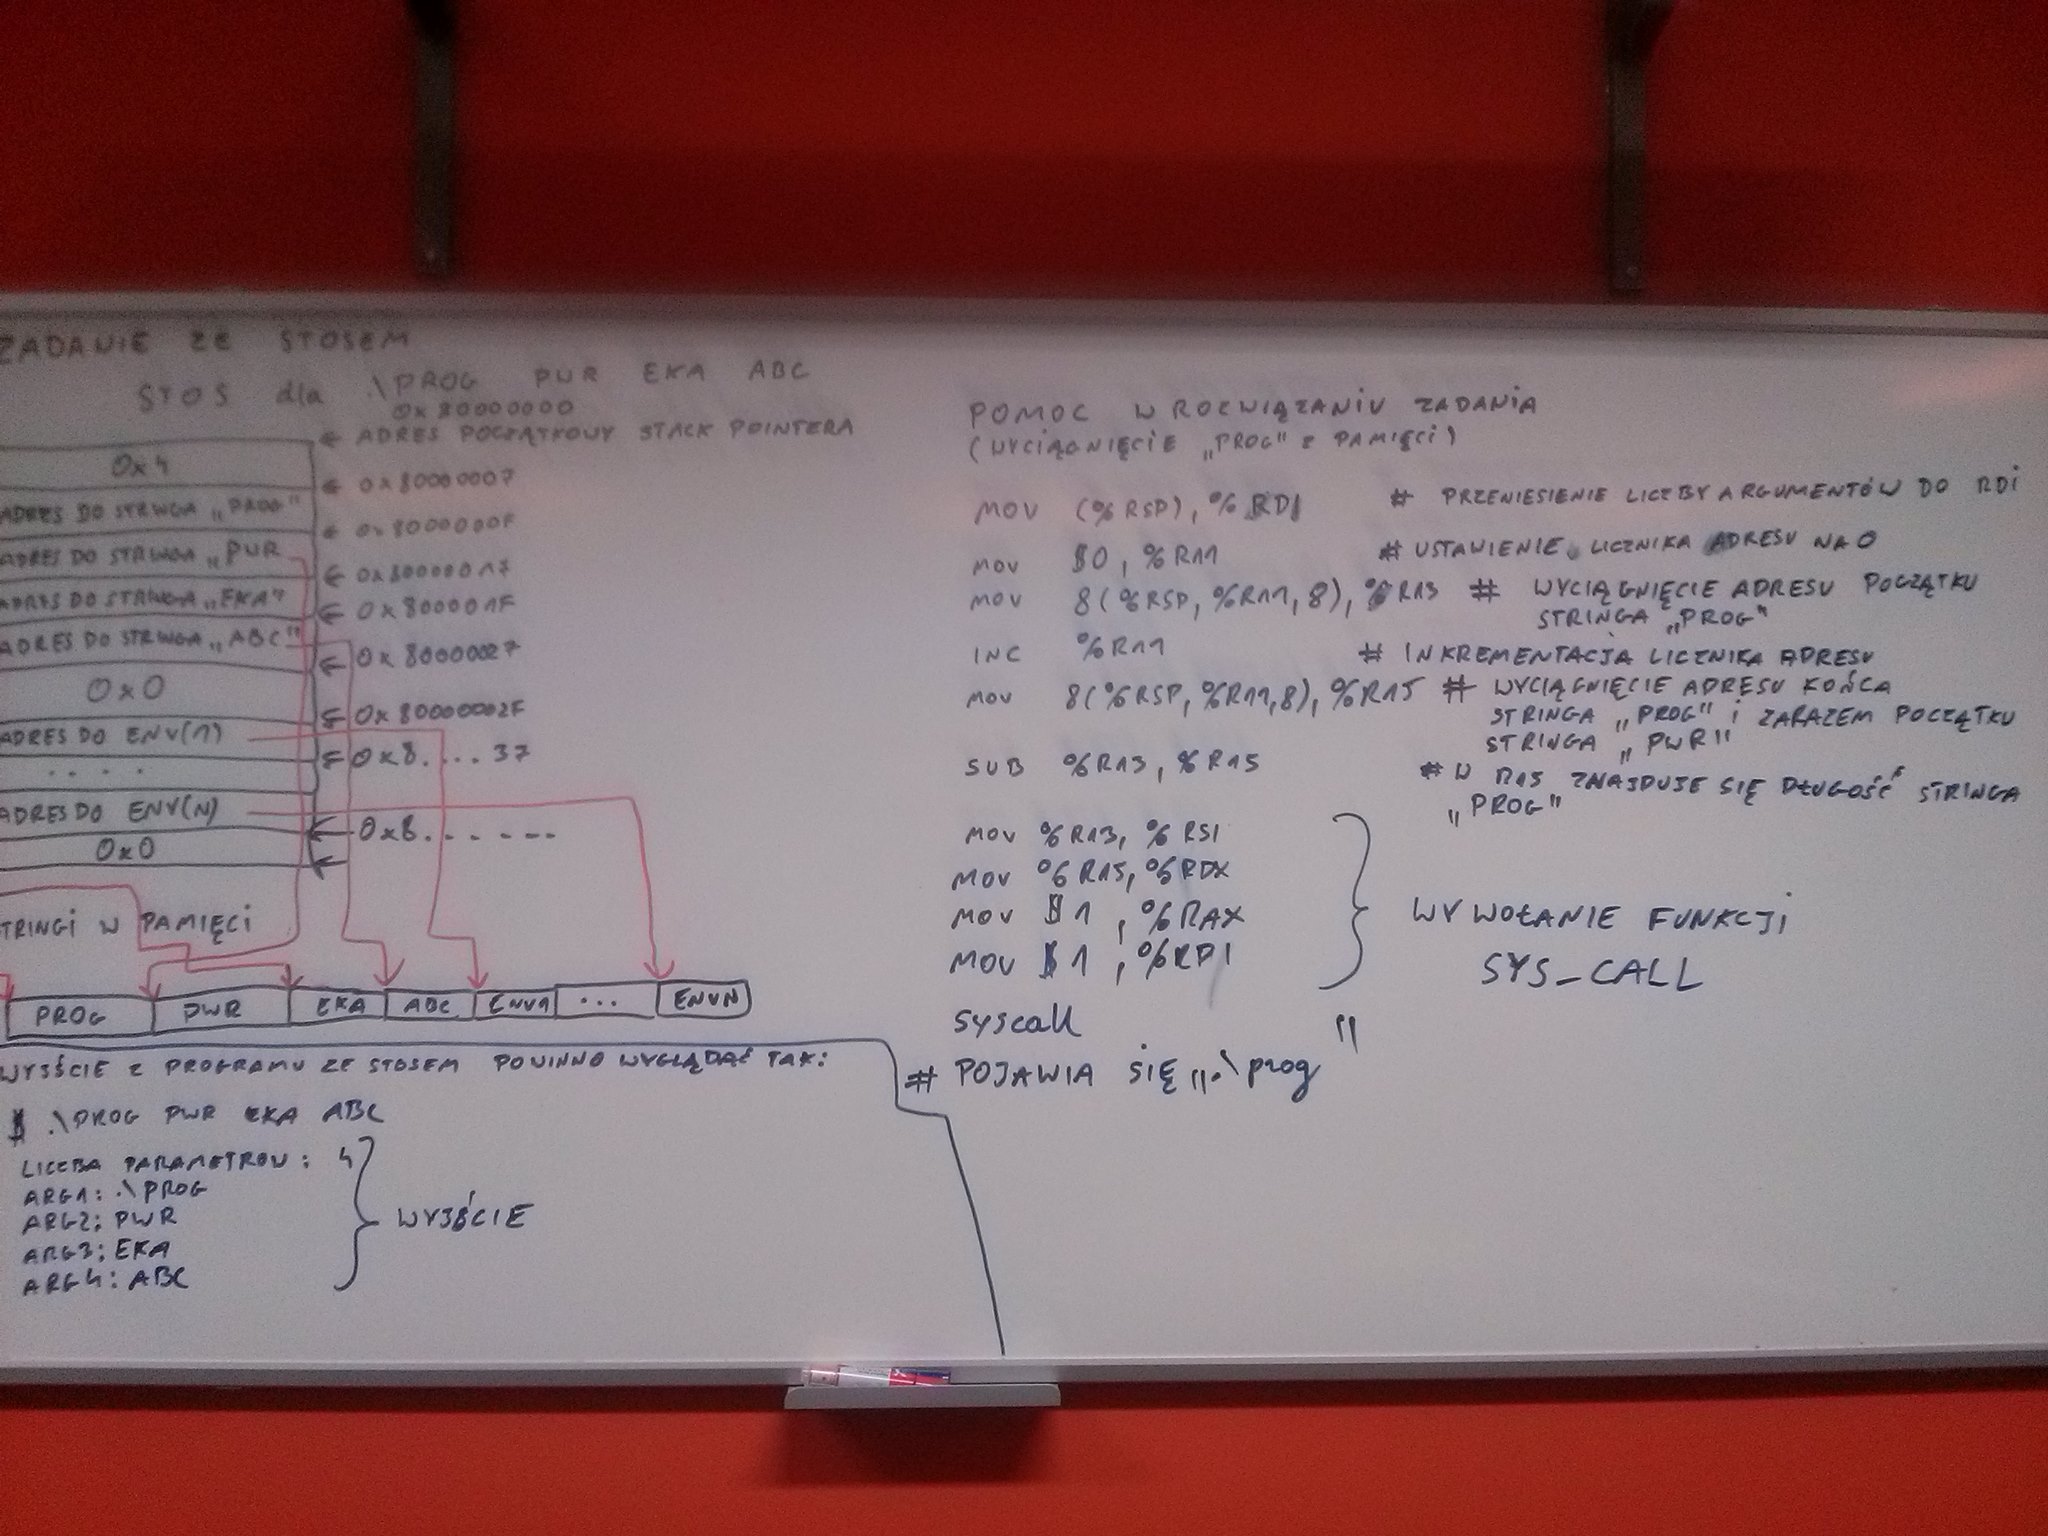 ZADANIE ZE STOSEM
STOS dla .\PROG PWR EKA ABC
0x80000000
← ADRES POCZĄTKOWY STACK POINTERA
0x4
← 0x80000007
ADRES DO STRINGA „PROG"
← 0x8000000F
ADRES DO STRINGA „PWR
← 0x80000017
ADRES DO STRINGA „EKA"
← 0x800001F
ADRES DO STRINGA „ABC"
← 0x80000027
0x0
← 0x80000002F
ADRES DO ENV(1)
← 0x8....37
. . . .
ADRES DO ENV(N)
← 0x8.......
0x0
TRINGI W PAMIĘCI
PROG PWR EKA ABC ENV1 ... ENVN
WYJŚCIE Z PROGRAMU ZE STOSEM POWINNO WYGLĄDAĆ TAK:
$ .\PROG PWR EKA ABC
LICZBA PARAMETROW: 4
ARG1: .\PROG
ARG2: PWR
ARG3: EKA
ARG4: ABC
WYJŚCIE
POMOC W ROZWIĄZANIU ZADANIA
(WYCIĄGNIĘCIE „PROG" Z PAMIĘCI)
MOV (%RSP), %RDI # PRZENIESIENIE LICZBY ARGUMENTÓW DO RDI
MOV $0, %R11 # USTAWIENIE LICZNIKA ADRESU NA 0
MOV 8(%RSP, %R11, 8), %R13 # WYCIĄGNIĘCIE ADRESU POCZĄTKU
STRINGA „PROG"
INC %R11 # INKREMENTACJA LICZNIKA ADRESU
MOV 8(%RSP, %R11,8), %R15 # WYCIĄGNIĘCIE ADRESU KOŃCA
STRINGA „PROG" i ZARAZEM POCZĄTKU
STRINGA „PWR"
SUB %R13, %R15 # W R15 ZNAJDUJE SIĘ DŁUGOŚĆ STRINGA
„PROG"
MOV %R13, %RSI
MOV %R15, %RDX
MOV $1, %RAX
MOV $1, %RDI
WYWOŁANIE FUNKCJI
SYS_CALL
syscall
# POJAWIA SIĘ „.\prog"